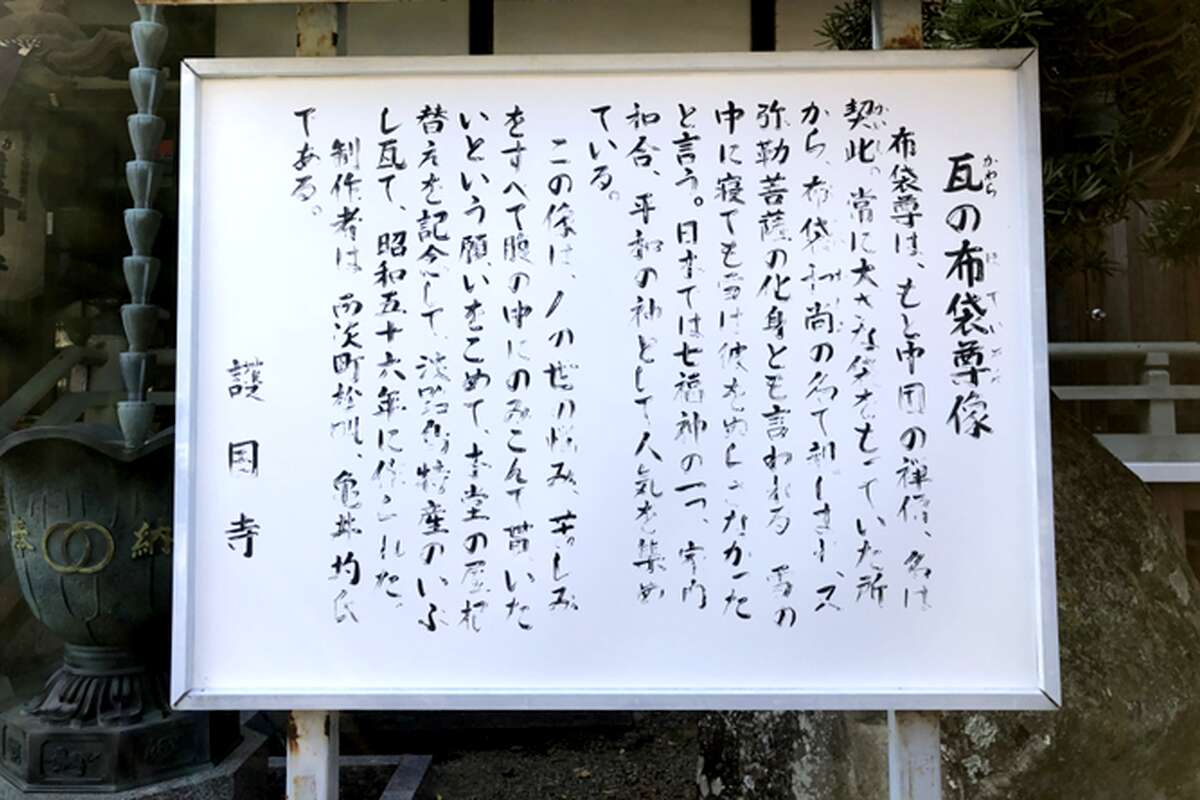 瓦の布袋尊像
布袋尊は、もと中国の禅僧、名は
契此。常に大きな袋をもっていた所
から、布袋和尚の名で親しまれ、又
弥勒菩薩の化身とも言われる 雪の
中に寝ても雪は彼をぬらさなかった
と言う。日本では七福神の一つ、家内
和合、平和の神として人気を集め
ている。
この像は、人のせの悩み、苦しみ
をすべて腹の中にのみこんで貰いた
いという願いをこめて、本堂の屋根
替えを記念して、淡路島特産のいぶ
し瓦で、昭和五十六年に作られた。
制作者は 西淡町松帆、亀井均氏
である。
護国寺
奉
納